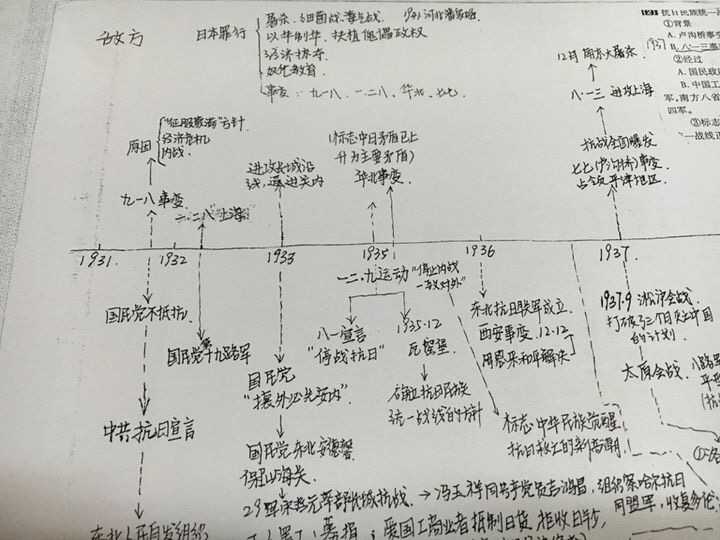 敌方
日本罪行
屠杀、细菌战、毒气战 1941河北潘家峪
以华制华，扶植傀儡政权
经济掠夺
奴化教育
事变：九一八、一二八、华北、七七
12月 南京大屠杀
八·一三 进攻上海
抗战全面爆发
七七(卢沟桥)事变
占领平津地区
"征服满蒙"方针
经济危机
内战
原因
九一八事变
一二八"上海"
进攻长城沿
线，逼进关内
(标志中日矛盾已上
升为主要矛盾)
华北事变
1931
1932
1933
1935
1936
1937
国民党不抵抗
中共抗日宣言
东北人民自发组织
国民党第十九路军
国民党
"攘外必先安内"
国民党东北安德馨
保山海关
29军宋哲元率部长城抗战 → 冯玉祥同共产党员吉鸿昌，组织察哈尔抗日
同盟军，收复多伦
募捐；爱国工商业者抵制日货，拒收日钞
一二·九运动"停止内战
一致对外"
八一宣言
"停战抗日"
1935.12
瓦窑堡
确立抗日民族
统一战线的方针
东北抗日联军成立
西安事变，12.12
周恩来和平解决
标志中华民族觉醒
抗日救亡的新高潮
1937.9 淞沪会战
打破了三个月灭亡中国
的计划
太原会战
八路军
平型
(抗
1937
抗日民族统一
①背景
A. 卢沟桥事变
B. 八·一三事
②经过
A. 国民政府
B. 中国工
军，南方八省
四军。
③标志
一战线正